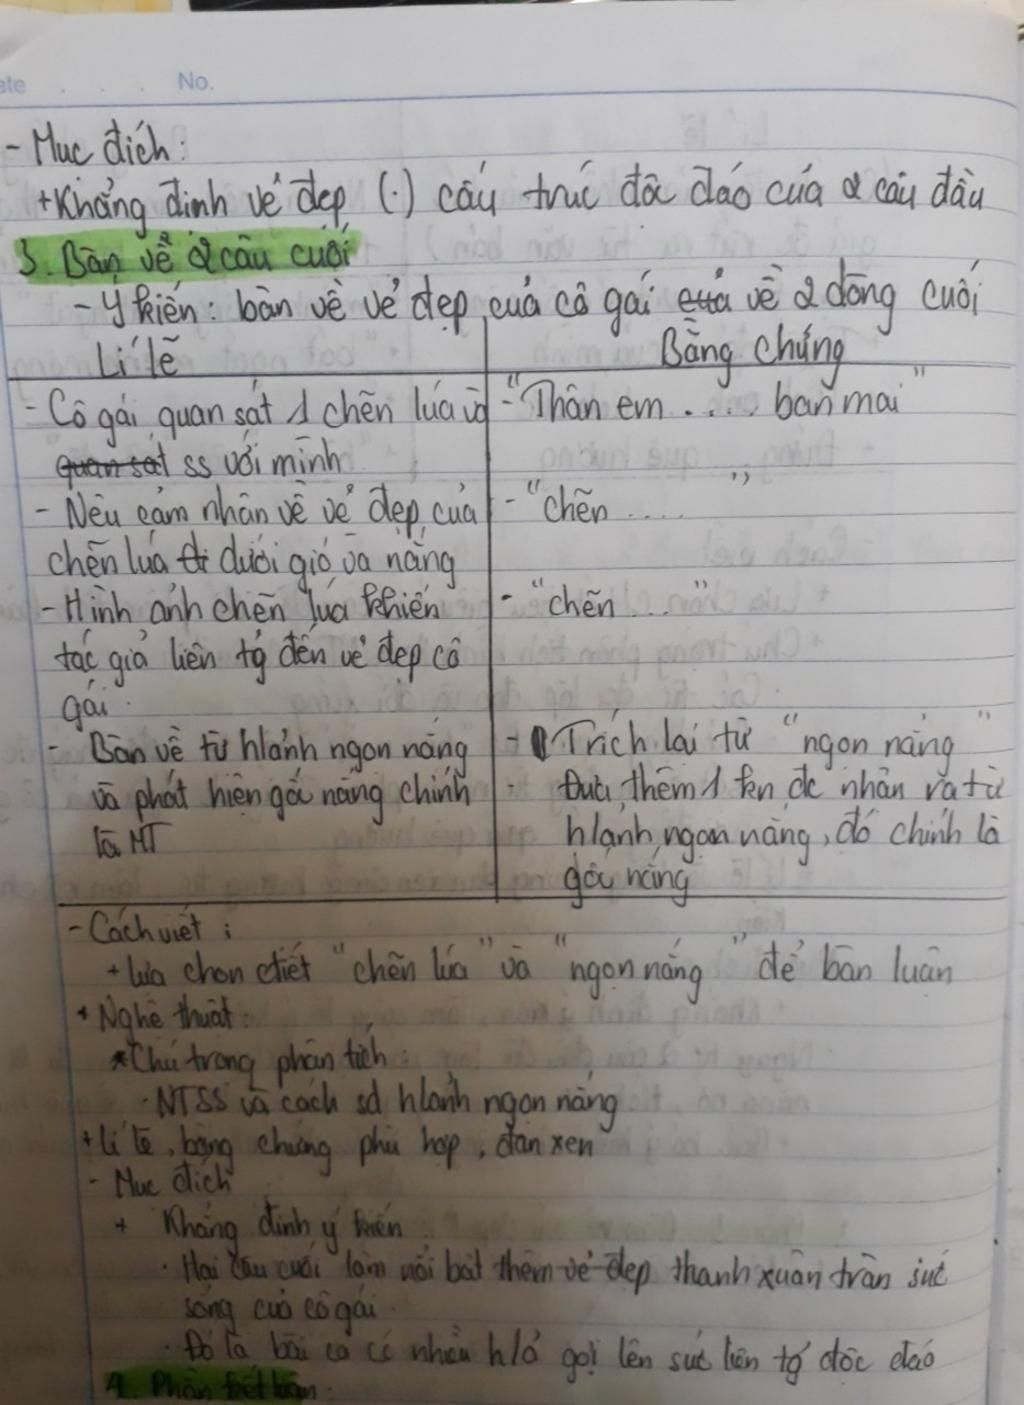 ate No.
- Mục đích:
+ Khẳng định vẻ đẹp (.) cấu trúc độc đáo của 2 câu đầu
3. Bàn về 2 câu cuối
- Ý kiến: bàn về vẻ đẹp của cô gái của về 2 dòng cuối
Lí lẽ
Bằng chứng
- Cô gái quan sát 1 chẽn lúa và
quan sát ss với mình
- "Thân em .... ban mai"
- Nêu cảm nhận về vẻ đẹp của
chẽn lúa dưới gió và nắng
- "chẽn ...."
- Hình ảnh chẽn lúa khiến
tác giả liên tg đến vẻ đẹp cô
gái.
- "chẽn ..."
- Bàn về từ hình ảnh ngọn nắng
và phát hiện gốc nắng chính
là MT
- Trích lại từ "ngọn nắng"
- Đưa thêm 1 kn đc nhân ra từ
hình ảnh ngọn nắng, đó chính là
gốc nắng
- Cách viết:
+ Lựa chọn ctiết "chẽn lúa" và "ngọn nắng" để bàn luận
+ Nghệ thuật:
* Chú trọng phân tích:
. NTSS và cách sd hình ảnh ngọn nắng
+ Lí lẽ, bằng chứng phù hợp, đan xen
- Mục đích
+ Khẳng định ý kiến
. Hai câu cuối làm nổi bật thêm vẻ đẹp thanh xuân tràn sức
sống của cô gái.
. Đó là bài ca có nhiều h/ả gợi lên sức liên tg độc đáo
4. Phần kết bàn: